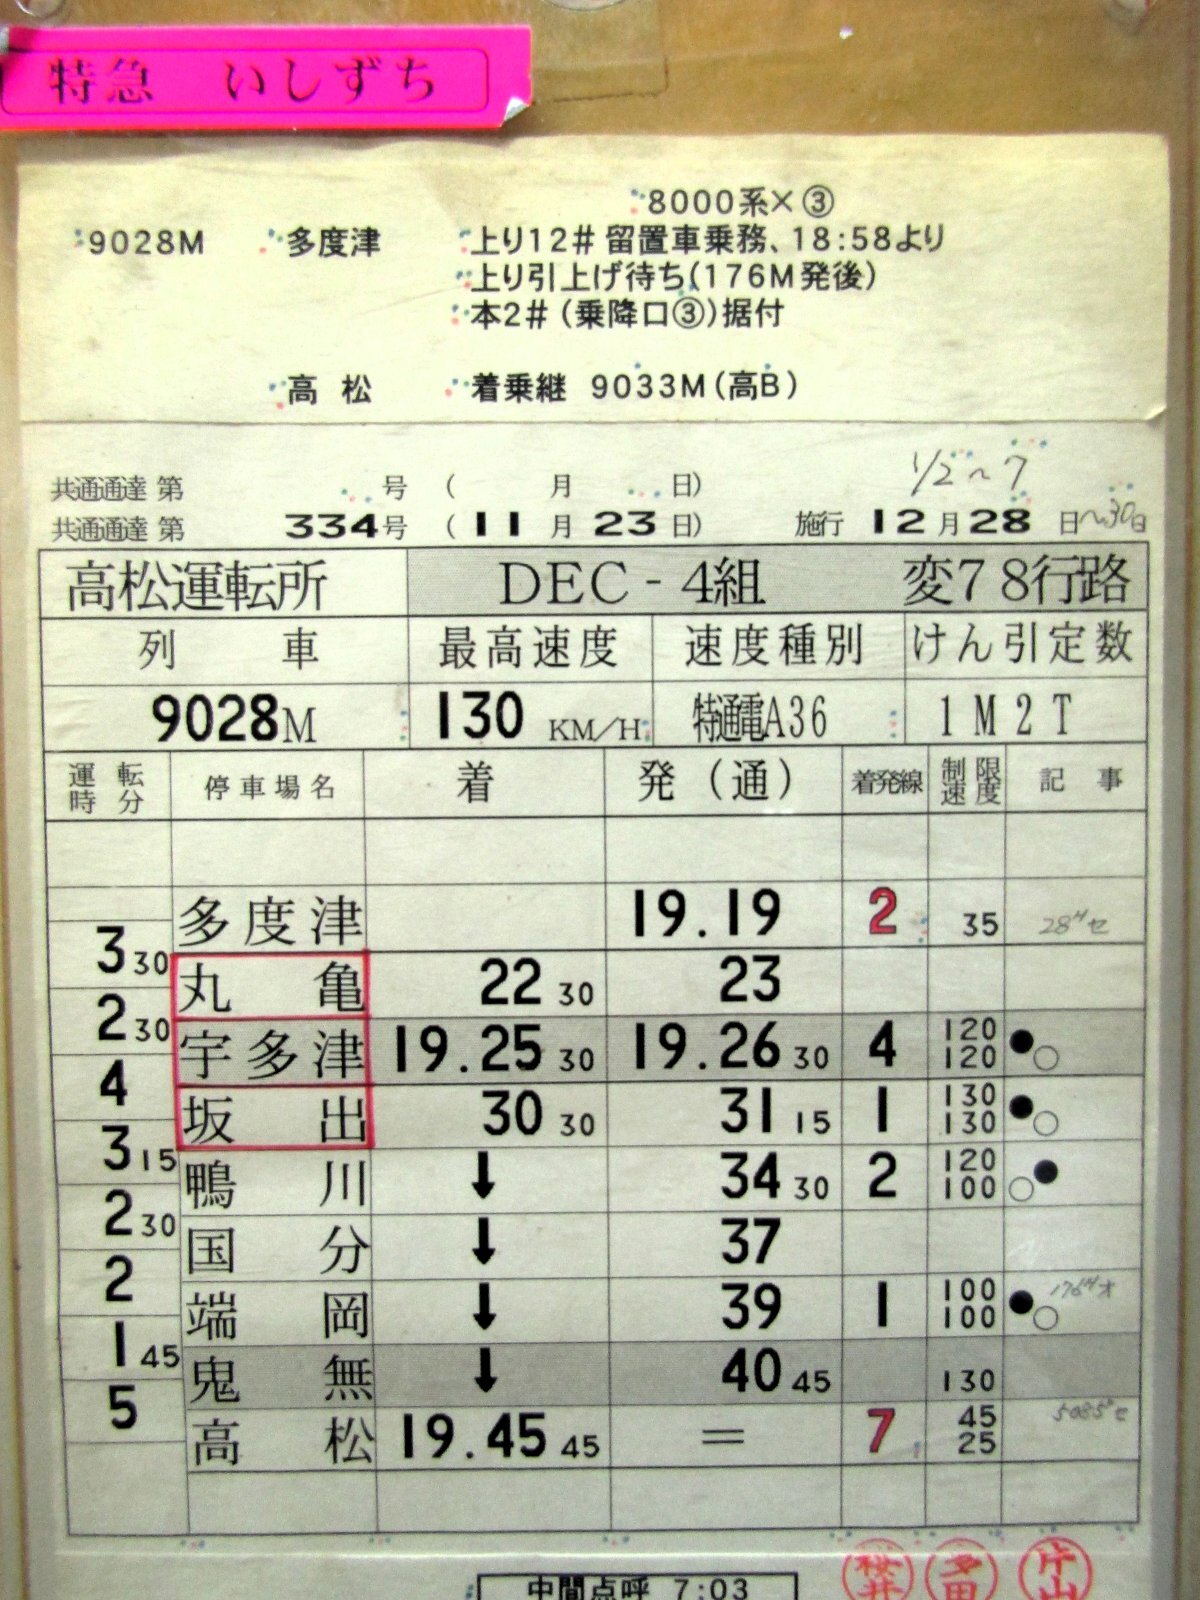 特急 いしずち
8000系×③
9028M 多度津 上り12＃留置車乗務、18:58より
上り引上げ待ち(176M発後)
本2＃(乗降口③)据付
高松 着乗継 9033M(高B)
1/2～7
共通通達 第 号 ( 月 日)
共通通達 第 334号 (11月23日) 施行 12月28日～30日
高松運転所 DEC-4組 変78行路
列車 最高速度 速度種別 けん引定数
9028M 130 KM/H 特通電A36 1M2T
運転時分 停車場名 着 発(通) 着発線 制限速度 記事
多度津 19.19 2 35 28Mセ
3 30
丸亀 22 30 23
2 30
宇多津 19.25 30 19.26 30 4 120 120 ●○
4
坂出 30 30 31 15 1 130 130 ●○
3 15
鴨川 ↓ 34 30 2 120 100 ○●
2 30
国分 ↓ 37
2
端岡 ↓ 39 1 100 100 ●○ 176Mオ
1 45
鬼無 ↓ 40 45 130
5
高松 19.45 45 ＝ 7 45 25
中間点呼 7:03
桜井 多田 片山